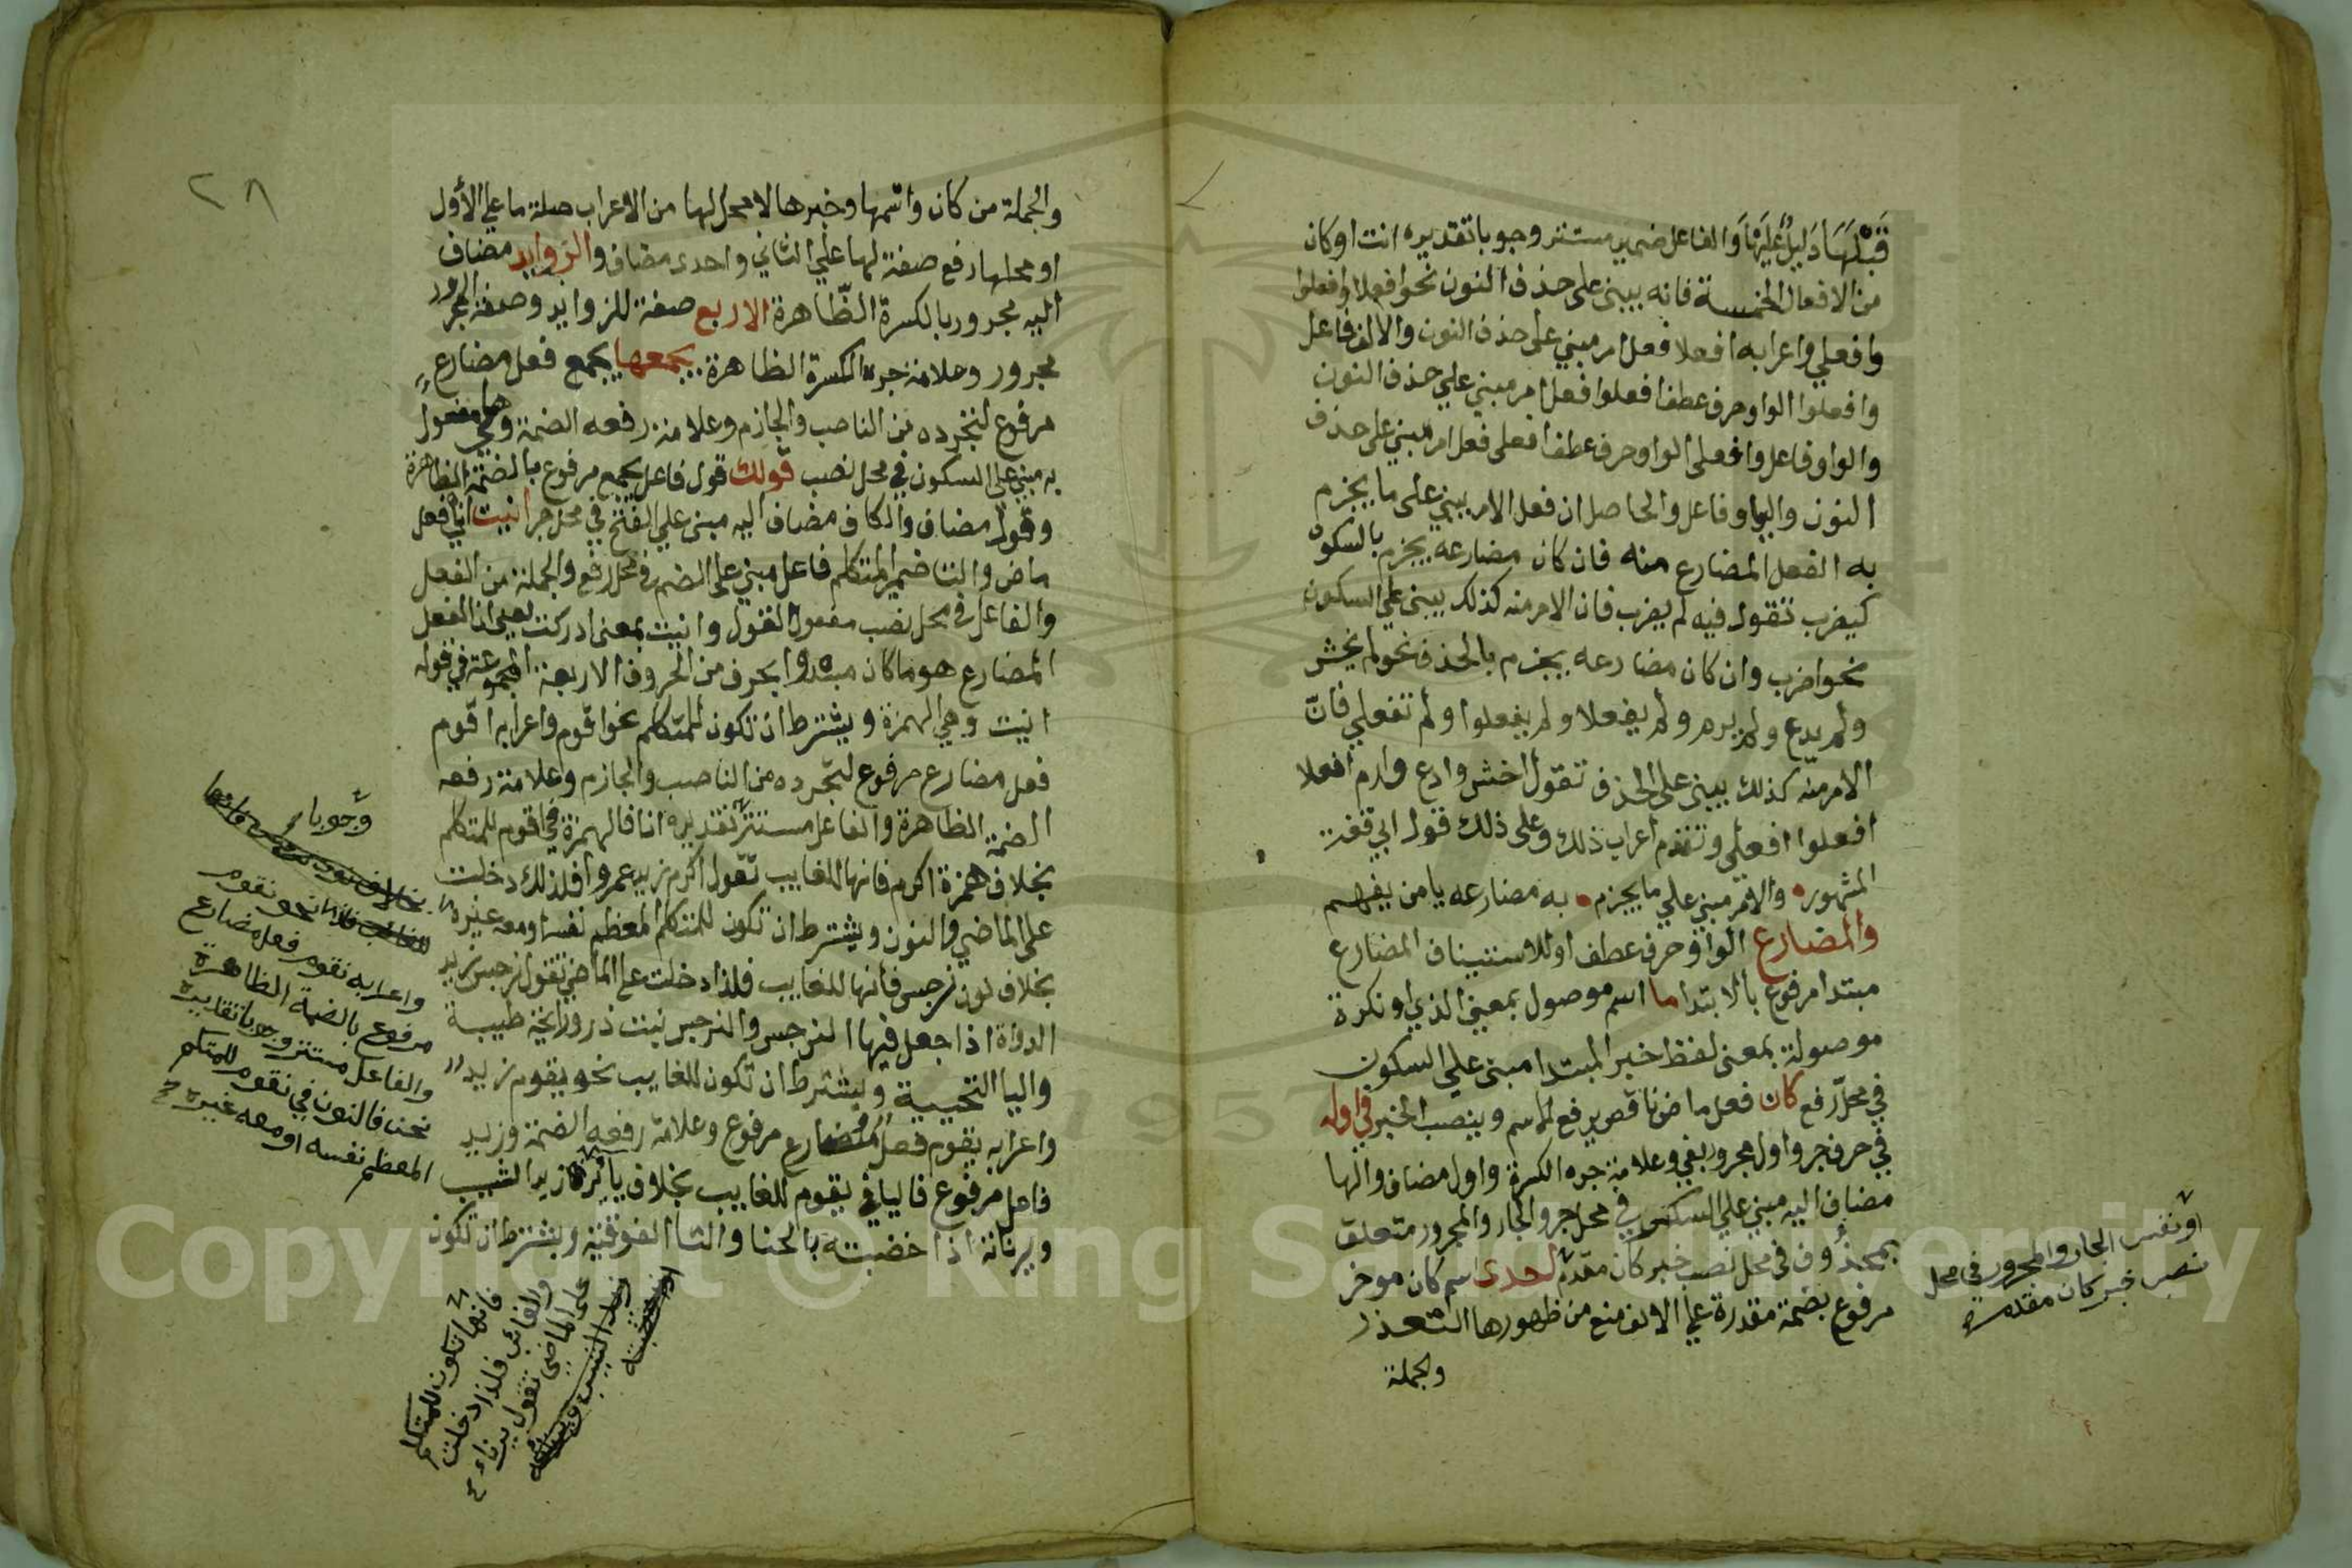 قَبْلَهَا دَلِيلٌ عَلَيْهَا وَالفاعل ضمير مستتر وجوبا تقديره انت او كان
من الافعال الخمسة فانه يبنى على حذف النون نحو افعلا وافعلوا
وافعلي واعرابه افعلا فعل امر مبني على حذف النون والالف فاعل
وافعلوا الواو حرف عطف افعلوا فعل امر مبني علي حذف النون
والواو فاعل وافعلى الواو حرف عطف افعلى فعل امر مبني على حذف
النون والياو فاعل والحاصل ان فعل الامر يبنى على ما يجزم
به الفعل المضارع منه فان كان مضارعه يجزم بالسكون
كيضرب تقول فيه لم يضرب فان الامر منه كذلك يبنى علي السكون
نحو اضرب وان كان مضارعه يجزم بالحذف نحو لم يخش
ولم يدع ولم يرم ولم يفعلا ولم يفعلوا ولم تفعلي فانّ
الامر منه كذلك يبنى على الحذف تقول اخش وادع وارم افعلا
افعلوا افعلى وتقدم اعراب ذلك وعلى ذلك قول ابي قفت
المشهوره والامر مبني علي ما يجزم به مضارعه يا من يفهم
والمضارع الواو حرف عطف او للاستيناف المضارع
مبتدا مرفوع بالابتدا ما اسم موصول بمعني الذي او نكرة
موصولة بمعنى لفظ خبر المبتدا مبنى علي السكون
في محل رفع كان فعل ماض ناقص يرفع الاسم وينصب الخبر في اوله
في حرف جر واول مجرور بفي وعلامة جره الكسرة واول مضاف والها
مضاف اليه مبني علي السكون في محل جر والجار والمجرور متعلق
بمحذوف في محل نصب خبر كان مقدم لحدى اسم كان موخر
مرفوع بضمة مقدرة علي الالف منع من ظهورها التعذر
والجملة
او نفس الجار والمجرور في محل
نصب خبر كان مقدم
٢٨
والجملة من كان واسمها وخبرها لا محل لها من الاعراب صلة ما علي الأول
او محلها رفع صفة لها علي الثاني واحدى مضاف والزوايد مضاف
اليه مجرور بالكسرة الظّاهرة الاربع صفة للزوايد وصفة المجرور
مجرور وعلامة جره الكسرة الظاهرة يجمعها يجمع فعل مضارع
مرفوع لتجرده من الناصب والجازم وعلامة رفعه الضمة وها مفعول
به مبني علي السكون في محل نصب قولك قول فاعل يجمع مرفوع بالضمة الظاهرة
وقول مضاف والكاف مضاف اليه مبنى علي الفتح في محل جر انيت انى فعل
ماض والتا ضمير المتكلم فاعل مبني على الضم في محل رفع والجملة من الفعل
والفاعل في محل نصب مفعول القول وانيت بمعنى ادركت يعني ان الفعل
المضارع هو ما كان مبتدوا بحرف من الحروف الاربعة المجموعة في قوله
انيت وهي الهمزة ويشترط ان تكون للمتكلم نحو اقوم واعرابه اقوم
فعل مضارع مرفوع لتجرده من الناصب والجازم وعلامة رفعه
الضمة الظاهرة والفاعل مستتر تقديره انا فالهمزة في اقوم للمتكلم
بخلاف همزة اكرم فانها للغايب تقول اكرم زيد عمروا فلذلك دخلت
على الماضي والنون ويشترط ان تكون للمتكلم المعظم نفسه او معه غيره
بخلاف نون نرجس فانها للغايب فلذا دخلت على الماضي تقول نرجس زيد
الدواة اذا جعل فيها النرجس والنرجس نبت ذو رايحة طيبة
واليا التحتية ويشترط ان تكون للغايب نحو يقوم زيد
واعرابه يقوم فعل مضارع مرفوع وعلامة رفعه الضمة وزيد
فاعل مرفوع فاليا في يقوم للغايب بخلاف يا يرنا زيد الشيب
ويرناته اذا خضبته بالحنا والتا الفوقية ويشترط ان تكون
وجوبا
نحو نقوم
واعرابه نقوم فعل مضارع
مرفوع بالضمة الظاهرة
والفاعل مستتر وجوبا تقديره
نحن فالنون في نقوم للمتكلم
المعظم نفسه او معه غيره
فانها تكون للمتكلم
والغائب فلذا دخلت
على الماضي تقول يرناء
Copyright © King Saud University
1957